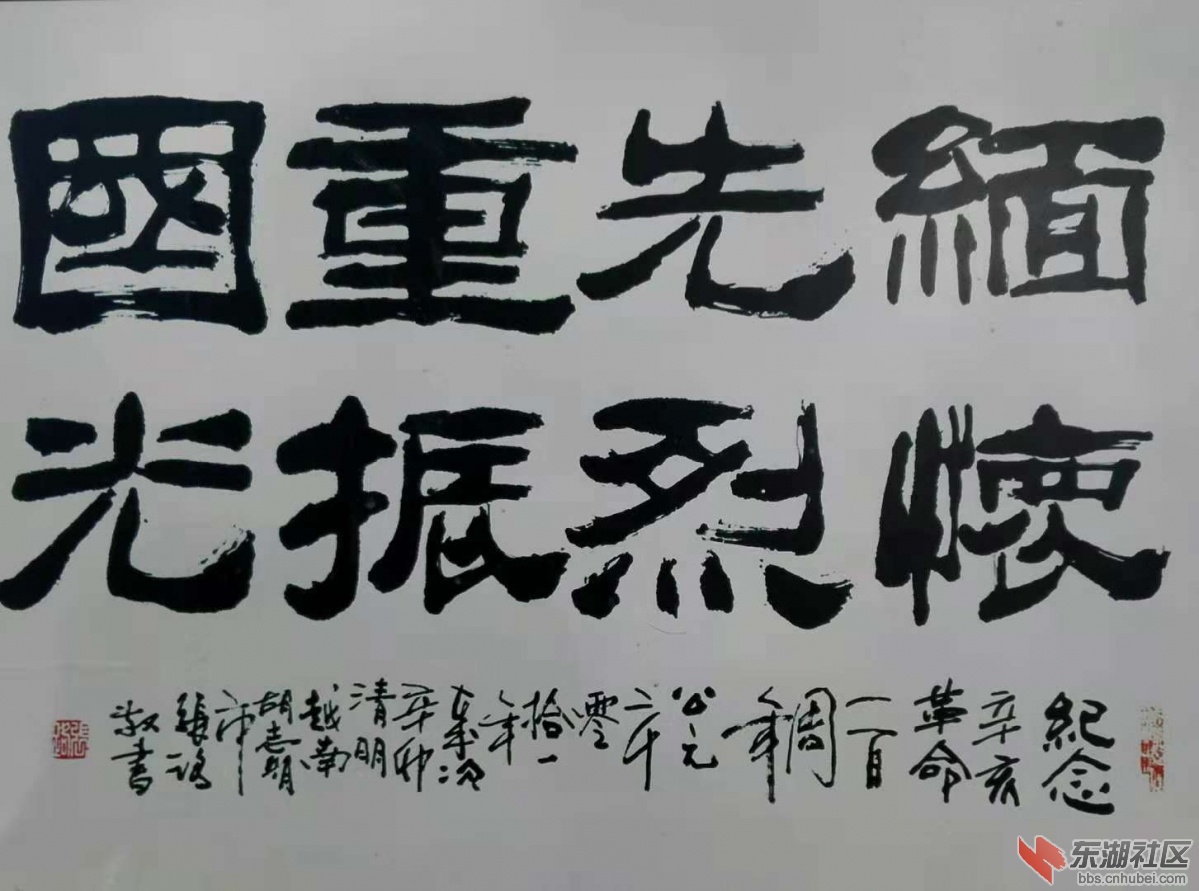 緬懷
先烈
重振
國光
紀念
辛亥
革命
一百
周
年
公元
二千
零
拾一
年
歲次
辛卯
清明
越南
胡志明
市
張
敬書
东湖社区
bbs.cnhubei.com